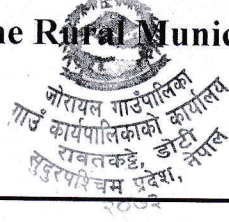 ne Rural Munic
जोरायल गाउँपालिका
गाउँ कार्यपालिकाको कार्यालय
रावतकट्टे, डोटी
सुदुरपश्चिम प्रदेश, नेपाल
२०७३